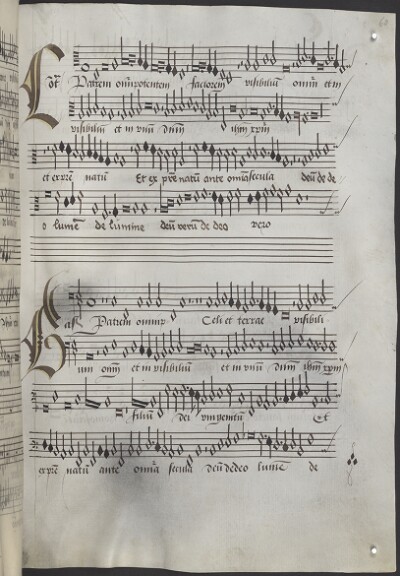 Patrem om̄ipotentem factorem visibiliū om̄iū et in
visibiliū et in vnū dn̄m ihm̄ xp̄m
et ex pr̄e natū Et ex pr̄e natū ante om̄ia secula deū de de
o lumē de lumine deū verū de deo vero
Patrem om̄ip Celi et terrae visibili
um om̄ et in visibiliū et in vnū dn̄m ihm̄ xp̄m
filiū dei vnigenitū Et
ex pr̄e natū ante om̄ia secula deū de deo lumē de